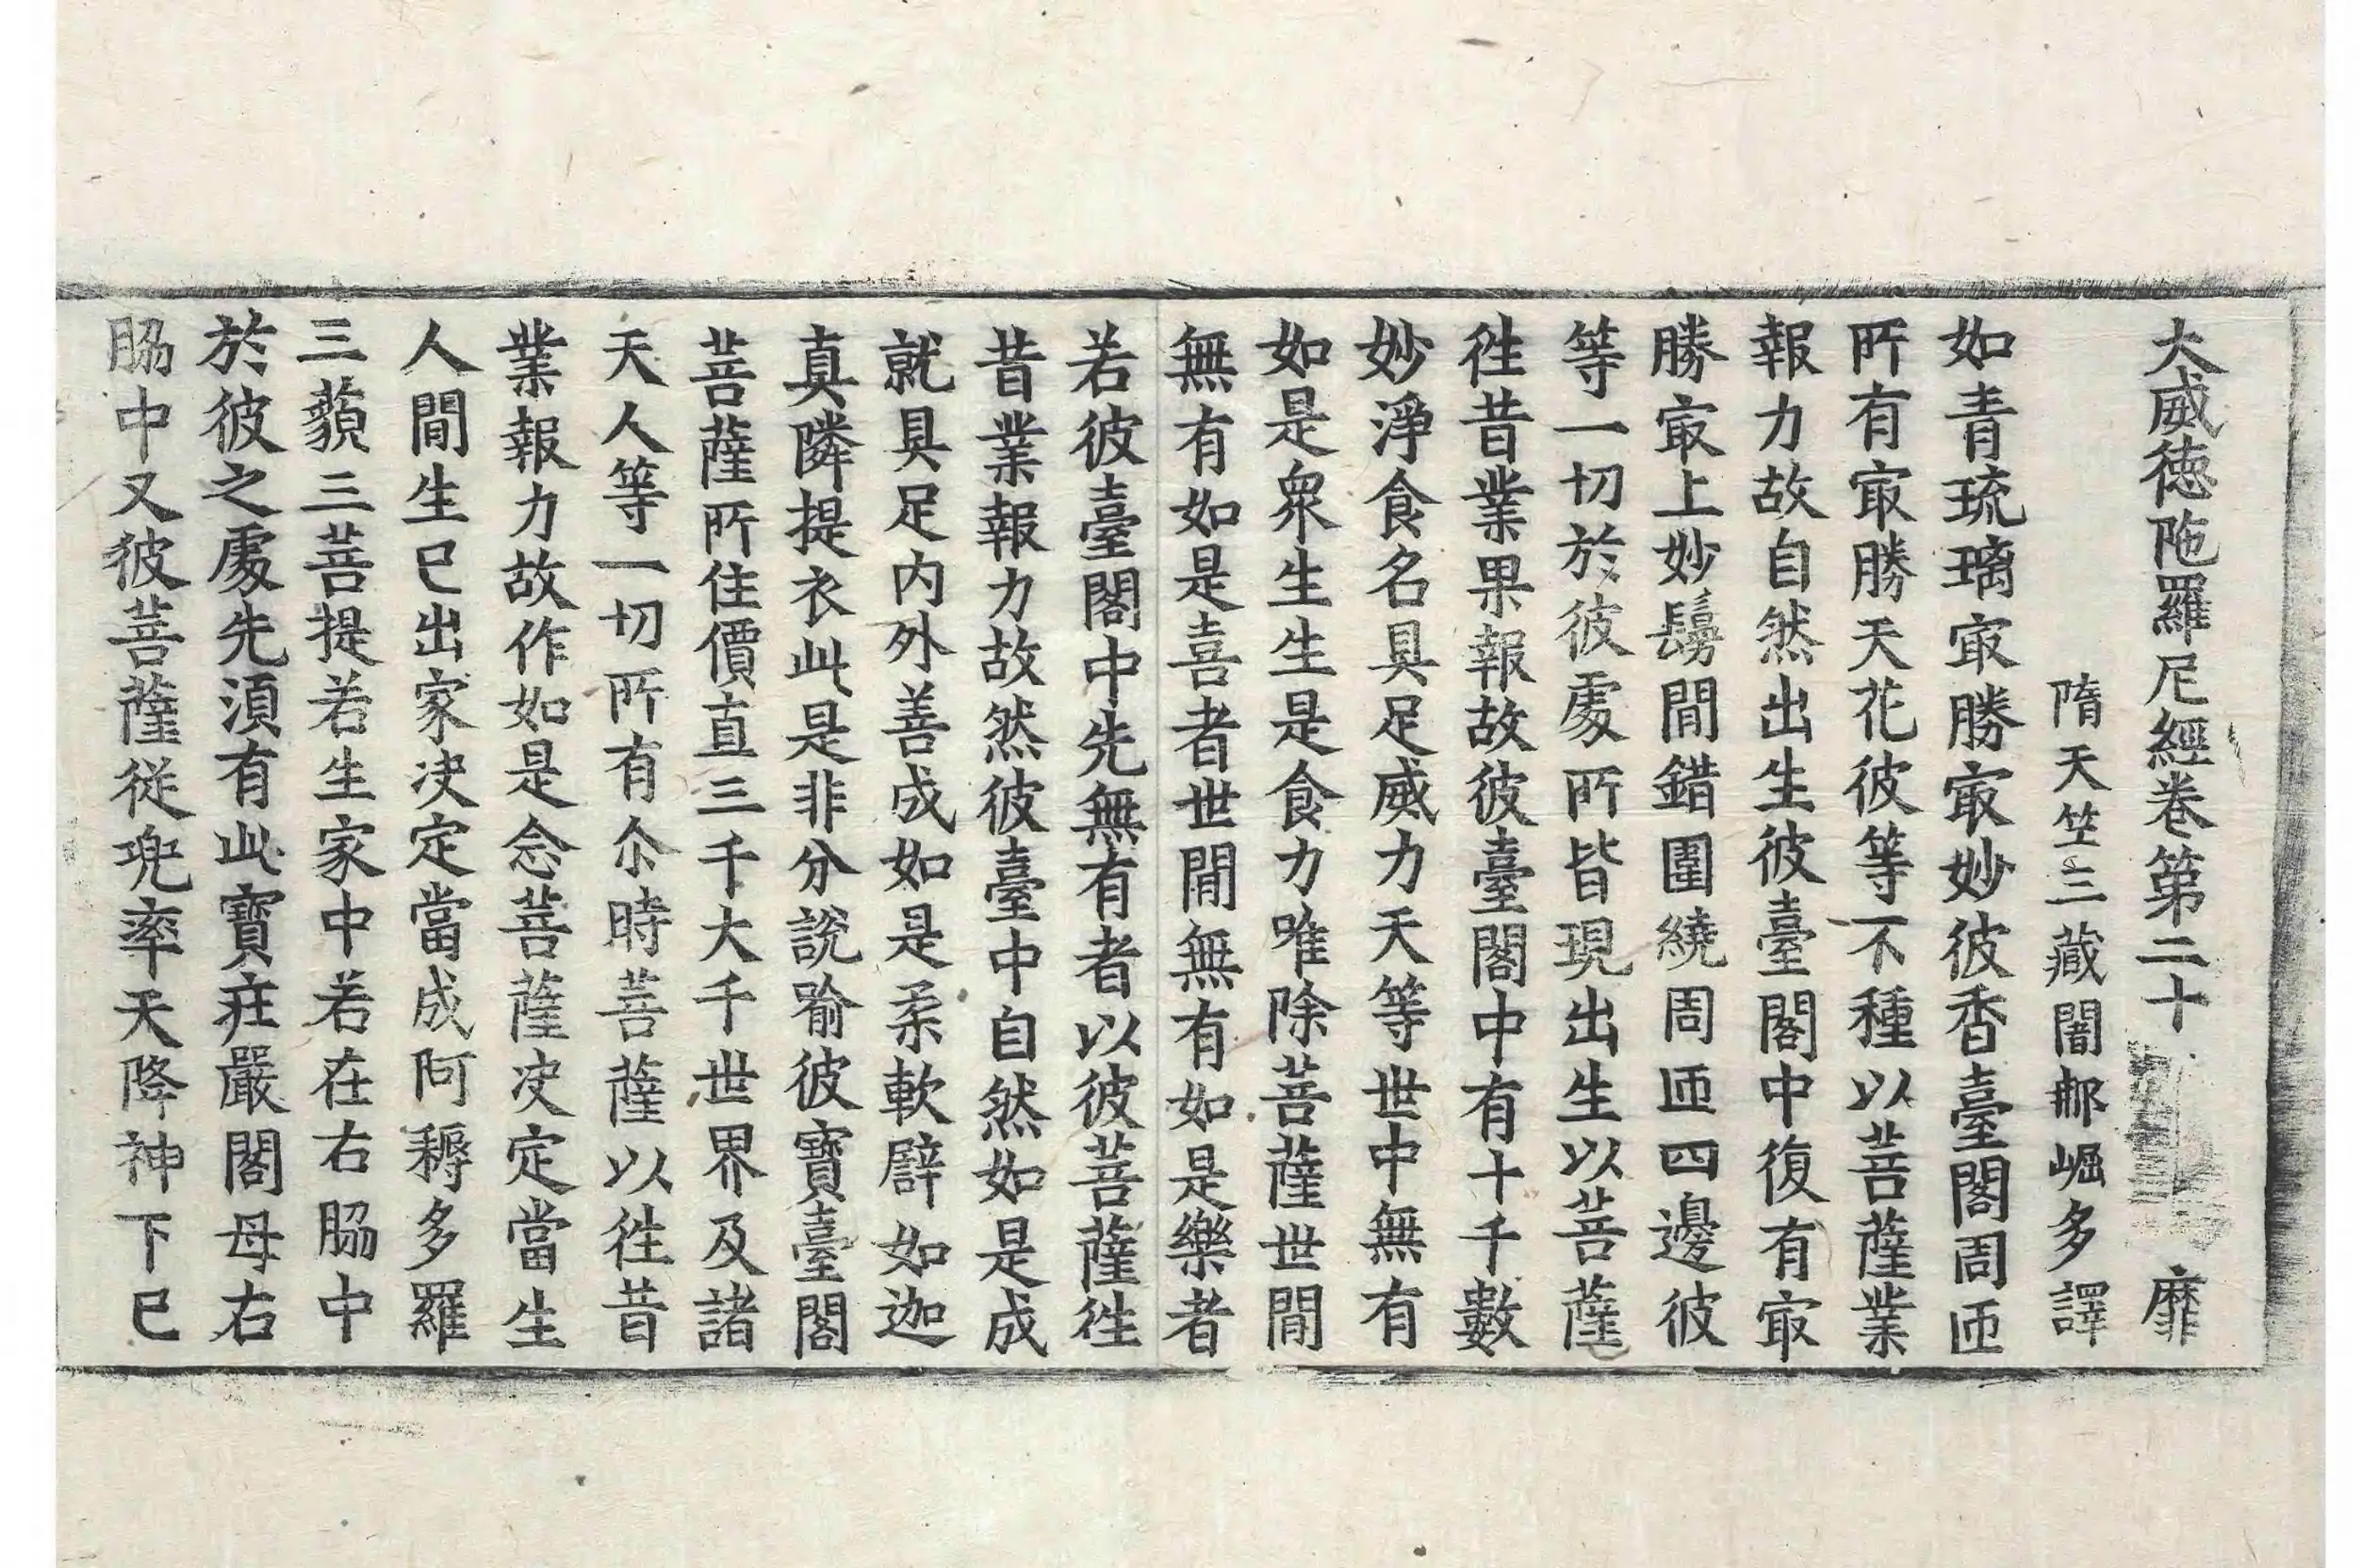 大威德陁羅尼經卷第二十 靡
隋天竺三藏闍那崛多譯
如青琉璃㝡勝㝡妙彼香臺閣周匝
所有㝡勝天花彼等不種以菩薩業
報力故自然出生彼臺閣中復有㝡
勝㝡上妙鬘間錯圍繞周匝四邊彼
等一切於彼處所皆現出生以菩薩
徃昔業果報故彼臺閣中有十千數
妙淨食名具足威力天等世中無有
如是衆生生是食力唯除菩薩世間
無有如是喜者世間無有如是樂者
若彼臺閣中先無有者以彼菩薩徃
昔業報力故然彼臺中自然如是成
就具足内外善成如是柔軟譬如迦
真隣提衣此是非分說喻彼寶臺閣
菩薩所住價直三千大千世界及諸
天人等一切所有尒時菩薩以徃昔
業報力故作如是念菩薩决定當生
人間生已出家决定當成阿耨多羅
三藐三菩提若生家中若在右脇中
於彼之處先須有此寶莊嚴閣母右
脇中又彼菩薩從兜率天降神下已